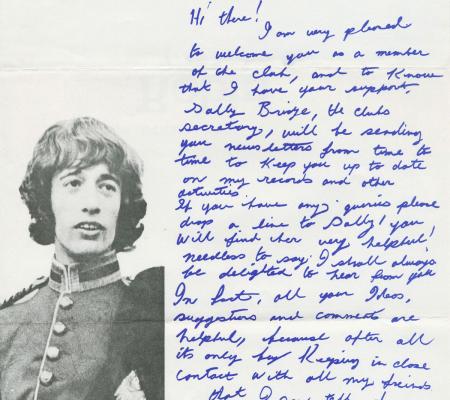 Hi there!
I am very pleased
to welcome you as a member
of the club, and to know
that I have your support.
Sally Bridge, the clubs
secretary, will be sending
you newsletters from time to
time to keep you up to date
on my records and other
activities.
If you have any queries please
drop a line to Sally! you
will find her very helpful!
needless to say, I shall always
be delighted to hear from you
In fact, all your Ideas,
suggestions and comments are
helpful, because after all
its only by keeping in close
contact with all my friends
that I